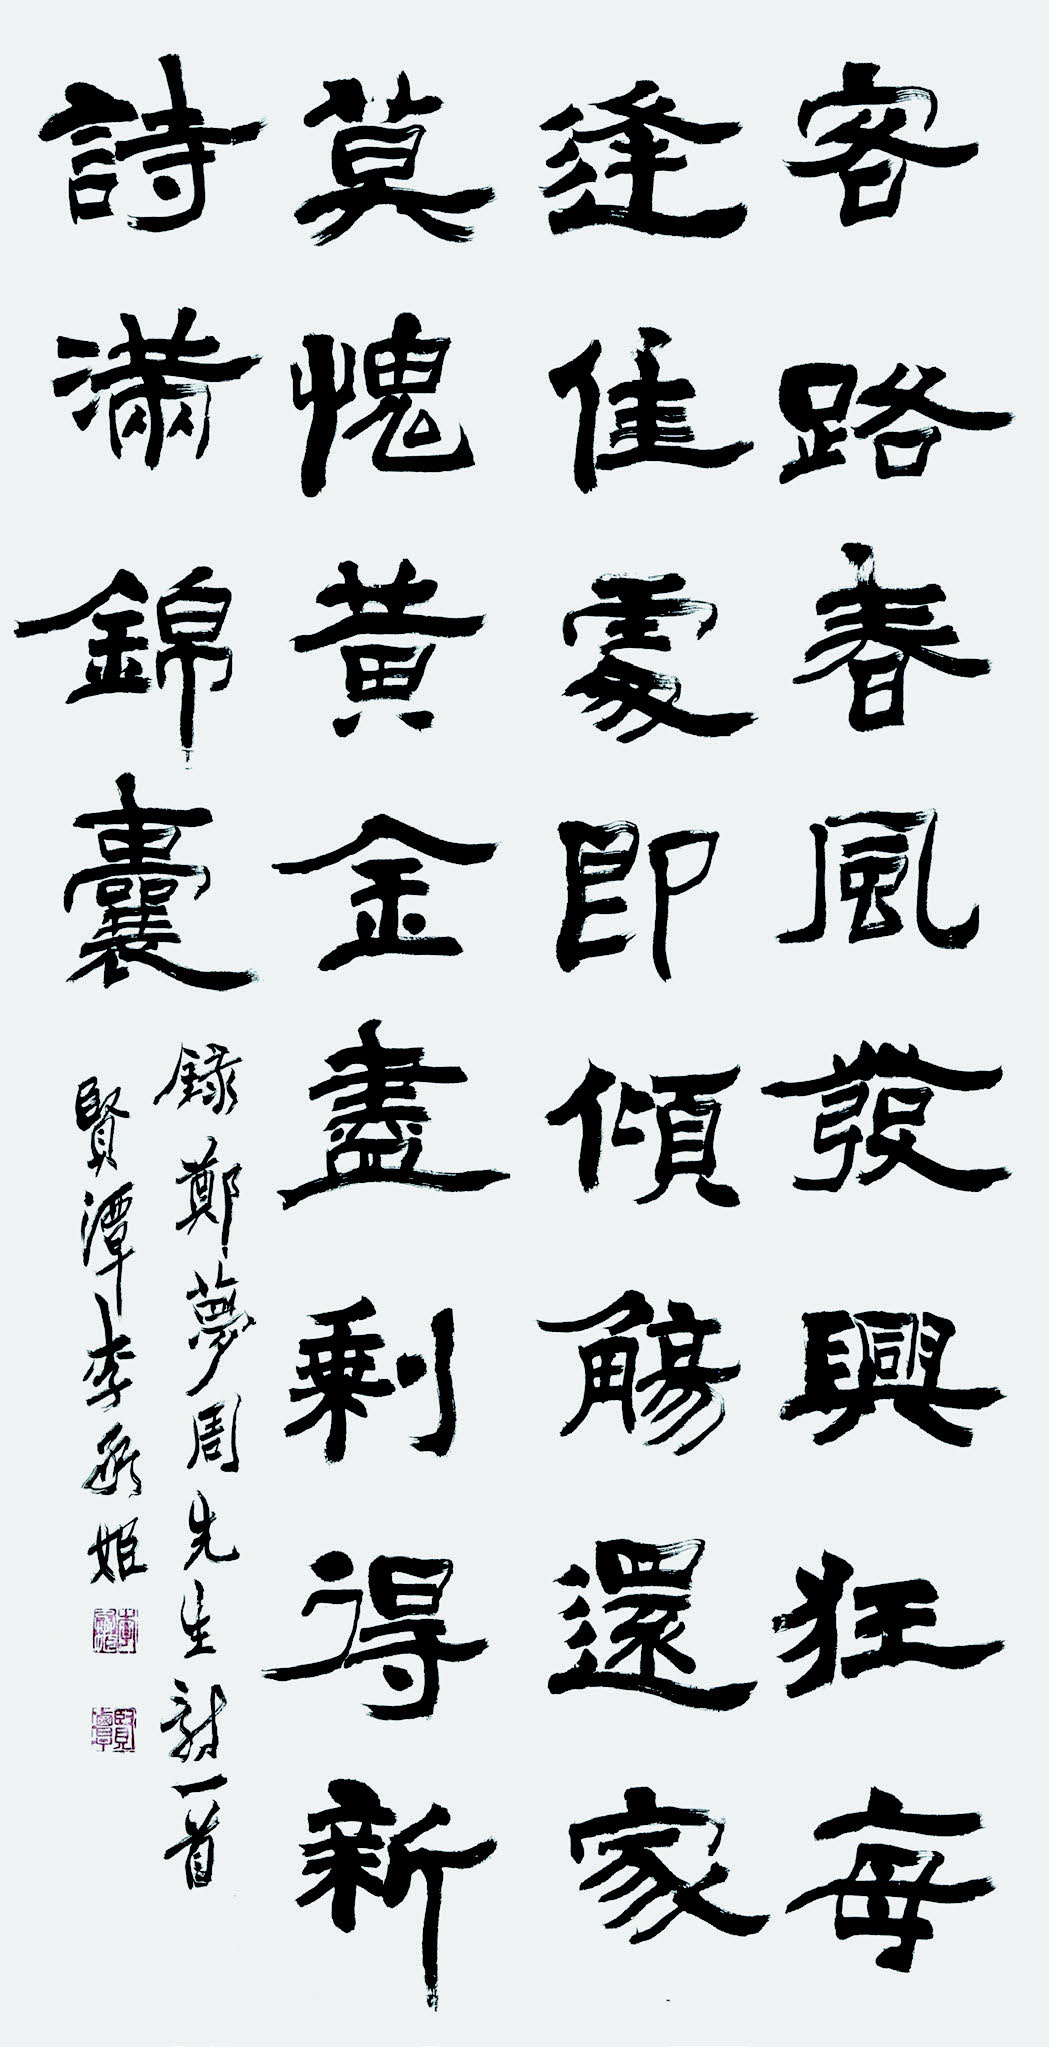 客路春風發興狂每
逢佳處即傾觴還家
莫愧黃金盡剩得新
詩滿錦囊
錄鄭夢周先生詩一首
賢潭李承姬